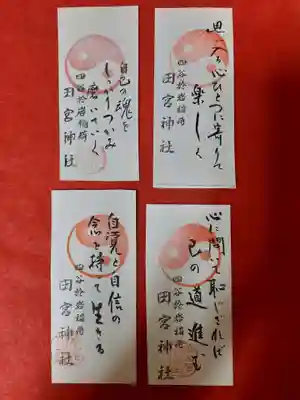 自己の魂を
しっかりつかみ
磨いていく
四谷於岩稲荷
田宮神社
思う心ひとつに寄りて
楽しく
四谷於岩稲荷
田宮神社
自覚と自信の
念を持て生きる
四谷於岩稲荷
田宮神社
心に問いて恥じざれば
己の道進む
四谷於岩稲荷
田宮神社